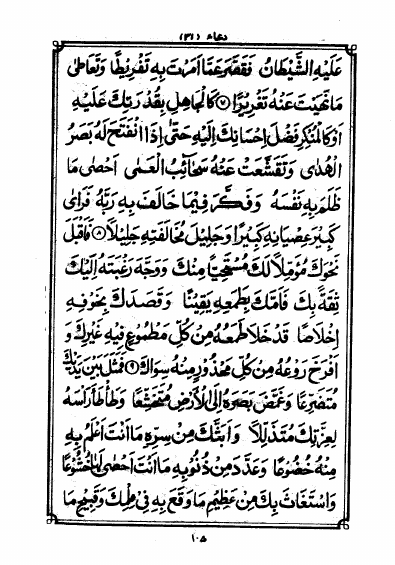 دعاء (۳۱)
عَلَيْهِ الشَّيْطَانُ فَقَصَّرَ عَمَّا اَمَرْتَ بِهِ تَفْرِيْطًا وَتَعَاطٰى
مَا نَهَيْتَ عَنْهُ تَغْرِيْرًا ﴿٧﴾ كَالْجَاهِلِ بِقُدْرَتِكَ عَلَيْهِ
اَوْ كَالْمُنْكِرِ فَضْلَ اِحْسَانِكَ اِلَيْهِ حَتّٰى اِذَا انْفَتَحَ لَهُ بَصَرُ
الْهُدٰى وَتَقَشَّعَتْ عَنْهُ سَحَائِبُ الْعَمٰى اَحْصٰى مَا
ظَلَمَ بِهِ نَفْسَهُ وَفَكَّرَ فِيْمَا خَالَفَ بِهِ رَبَّهُ فَرَاٰى
كَبِيْرَ عِصْيَانِهِ كَبِيْرًا وَجَلِيْلَ مُخَالَفَتِهِ جَلِيْلًا ﴿٨﴾ فَاَقْبَلَ
نَحْوَكَ مُؤَمِّلًا لَكَ مُسْتَحْيِيًا مِنْكَ وَوَجَّهَ رَغْبَتَهُ اِلَيْكَ
ثِقَةً بِكَ فَاَمَّكَ بِطَمَعِهِ يَقِيْنًا وَقَصَدَكَ بِخَوْفِهِ
اِخْلَاصًا قَدْ خَلَا طَمَعُهُ مِنْ كُلِّ مَطْمُوْعٍ فِيْهِ غَيْرِكَ وَ
اَفْرَخَ رَوْعُهُ مِنْ كُلِّ مَحْذُوْرٍ مِنْهُ سِوَاكَ ﴿٩﴾ فَمَثَلَ بَيْنَ يَدَيْكَ
مُتَضَرِّعًا وَغَمَّضَ بَصَرَهُ اِلَى الْاَرْضِ مُتَخَشِّعًا وَطَأْطَاَ رَاْسَهُ
لِعِزَّتِكَ مُتَذَلِّلًا وَاَبَثَّكَ مِنْ سِرِّهِ مَا اَنْتَ اَعْلَمُ بِهِ
مِنْهُ خُضُوْعًا وَعَدَّدَ مِنْ ذُنُوْبِهِ مَا اَنْتَ اَحْصٰى لَهَا خُشُوْعًا
وَاسْتَغَاثَ بِكَ مِنْ عَظِيْمِ مَا وَقَعَ بِهِ فِيْ عِلْمِكَ وَقَبِيْحِ مَا
۱۰۵